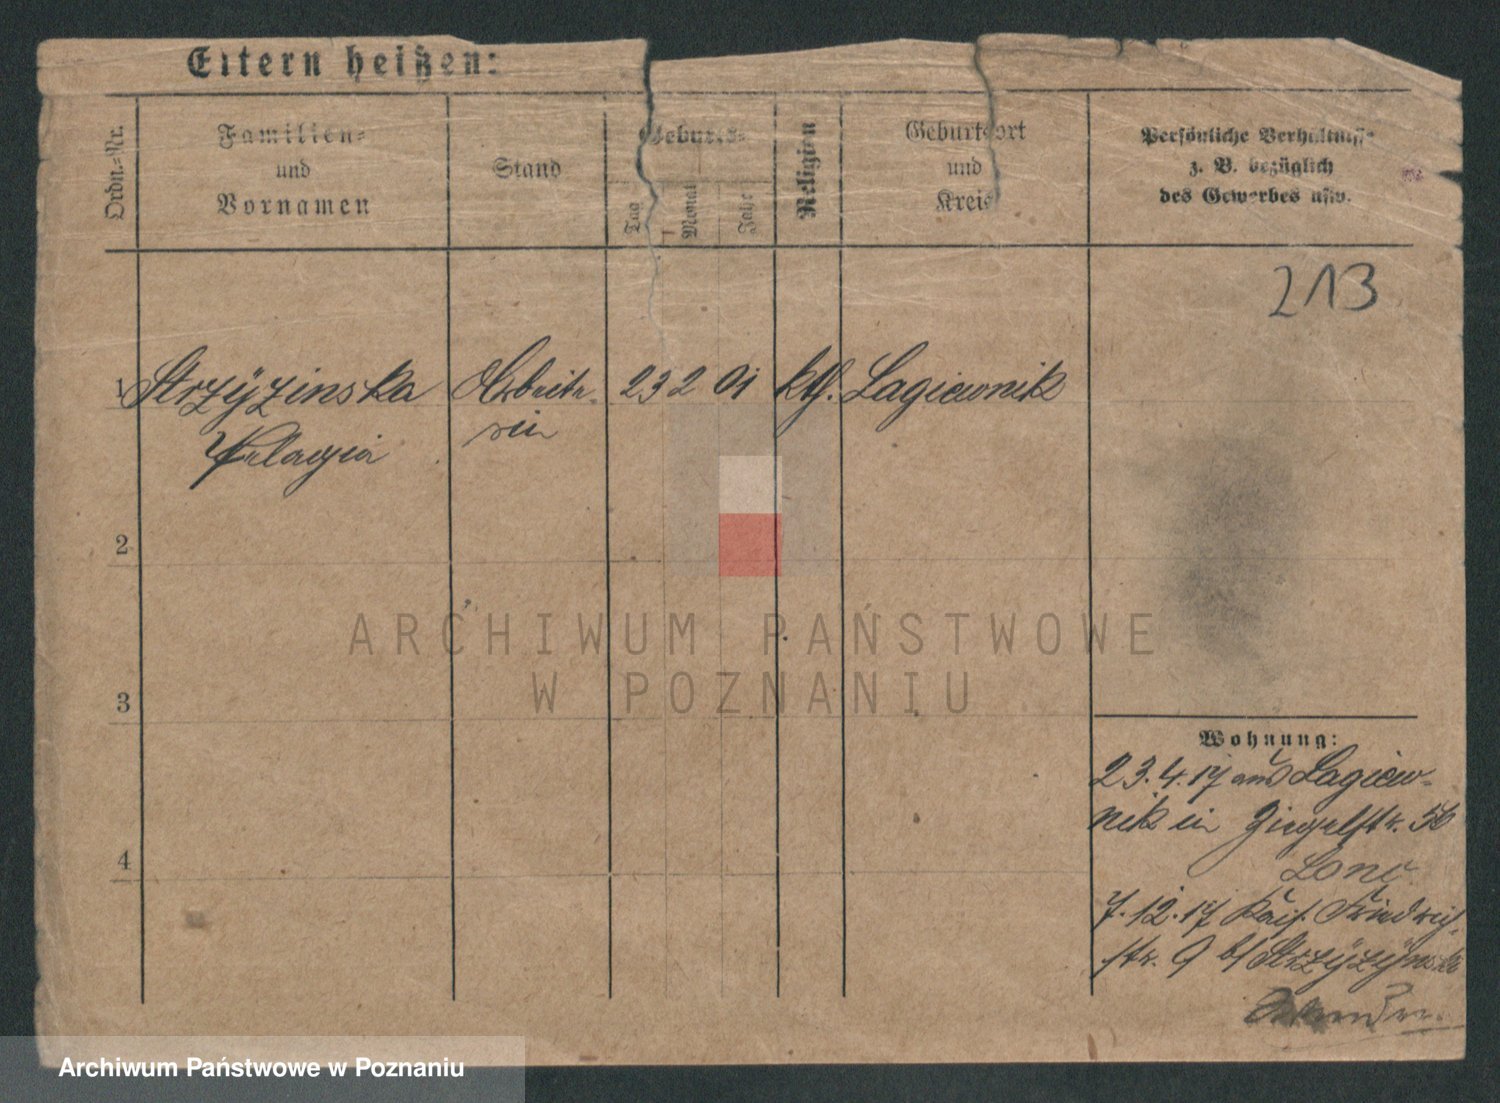 Eltern heißen:
Ordn.-Nr.
Familien-
und
Vornamen
Stand
Geburts-
Tag
Monat
Jahr
Religion
Geburtsort
und
Kreis
Persönliche Verhältnisse
z. B. bezüglich
des Gewerbes usw.
213
1 Strzyżinska Arbeite- 23 2 01 kth. Lagiewnik
Pelagia rin
2
3
4
Wohnung:
23.4.17 aus Lagiew-
nik in Ziegelstr. 56
7.12.17 Kais. Friedrich-
str. 9 b/ Strzyżynska
ARCHIWUM PAŃSTWOWE
W POZNANIU
Archiwum Państwowe w Poznaniu